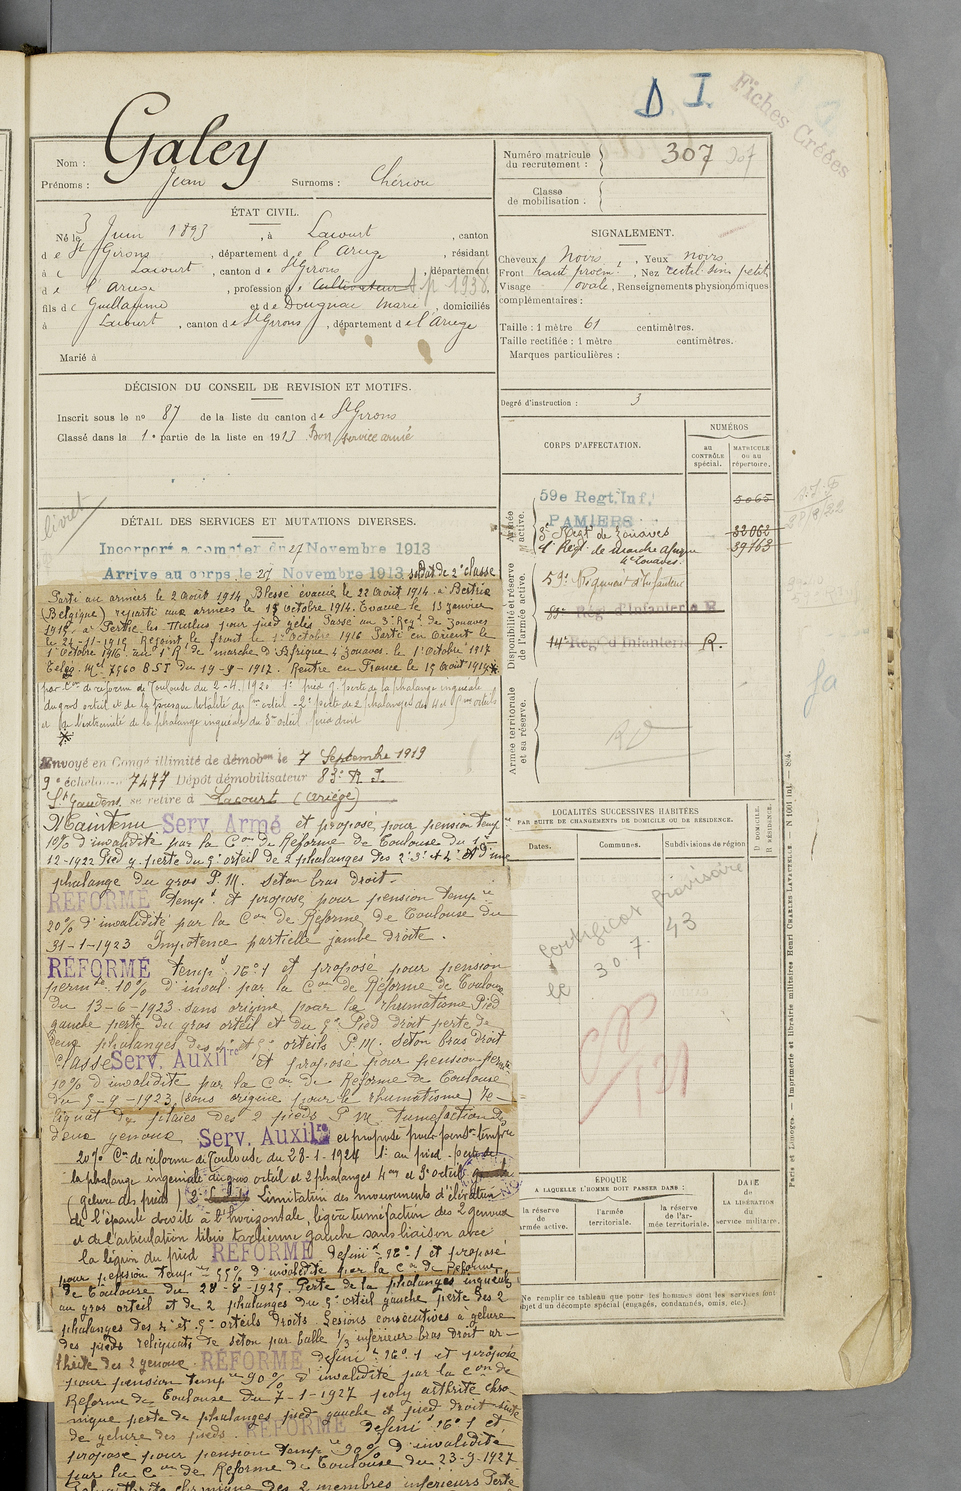 D I
Fiches Créées
Nom : Galey
Prénoms : Jean Surnoms : Chériou
Numéro matricule du recrutement : 307
Classe de mobilisation :
ÉTAT CIVIL.
Né le 3 Juin 1893, à Lacourt, canton
de St Girons, département de l'Ariège, résidant
à Lacourt, canton de St Girons, département
de l'Ariège, profession de Cultivateur
fils de Guillaume et de Dougnac Marie, domiciliés
à Lacourt, canton de St Girons, département de l'Ariège
Marié à
SIGNALEMENT.
Cheveux Noirs, Yeux noirs
Front haut proem t, Nez rectil. sin. petit
Visage ovale, Renseignements physionomiques
complémentaires :
Taille : 1 mètre 61 centimètres.
Taille rectifiée : 1 mètre centimètres.
Marques particulières :
Degré d'instruction : 3
DÉCISION DU CONSEIL DE REVISION ET MOTIFS.
Inscrit sous le no 87 de la liste du canton de St Girons
Classé dans la 1e partie de la liste en 1913 Bon service armé
CORPS D'AFFECTATION.
NUMÉROS
au CONTRÔLE spécial.
MATRICULE ou au répertoire.
Armée active.
59e Regt. Inf. 5065
PAMIERS
3e Regt de Zouaves 32062
1er Regt de marche Afrique 39163
4e Zouaves
Disponibilité et réserve de l'armée active.
59e Régiment d'Infanterie
83e Reg d'Infanterie R
14e Reg d'Infanterie R.
Armée territoriale et sa réserve.
livret
DÉTAIL DES SERVICES ET MUTATIONS DIVERSES.
Incorporé a compter du 27 Novembre 1913
Arrive au corps le 27 Novembre 1913 soldat de 2e classe
Parti aux armées le 2 Août 1914. Blessé évacué le 22 Août 1914 à Bertrix
(Belgique) reparti aux armées le 15 Octobre 1914. Evacué le 13 janvier
1915 à Perthe les Hurlus pour pied gelés Passé au 3e Regt de Zouaves
le 24-11-1915 Rejoint le front le 1er Octobre 1916 Parti en Orient le
1er Octobre 1916 au 1er R. de marche d'Afrique 4e Zouaves le 1er Octobre 1917
Teleg. Mel 7560 BST du 19-9-1917. Rentré en France le 15 Août 1919
par Con de réforme de Toulouse du 2-4-1920 1° pied g. perte de la phalange ungueale
du gros orteil et de la presque totalité du orteil - 2° perte de 2 phalanges des 4e et 5eme orteils
et de l'extrémité de la phalange ungueale du 3e orteil, pied droit
Envoyé en Congé illimité de démobon le 7 Septembre 1919
9e échelon 7477 Dépôt démobilisateur 83e R I
St Gaudens se retire à Lacourt (Ariège)
Maintenu Serv. Armé et proposé pour pension temp re
10% d'invalidité par la Con de Réforme de Toulouse du 1er
12-1922 Pied g. perte du 5e orteil de 2 phalanges des 2e 3e et 4e et d'une
phalange du gros P. M. Seton bras droit.
RÉFORMÉ tempt et proposé pour pension temp re
20% d'invalidité par la Con de Réforme de Toulouse du
31-1-1923 Impotence partielle jambe droite.
RÉFORMÉ tempt No 1 et proposé pour pension
permte 10% d'inval. par la Con de Réforme de Toulouse
du 13-6-1923 sans origine pour le rhumatisme Pied
gauche perte du gros orteil et du 5e Pied droit perte de
deux phalanges des 4e et 5e orteils P. M. Seton bras droit
Classé Serv. Auxilre et proposé pour pension perm te
10% d'invalidité par la Con de Réforme de Toulouse
du 5-9-1923 (sans origine pour le rhumatisme) re-
liquat de plaies des 2 pieds P M. tuméfaction des
deux genoux Serv. Auxilre et proposé pour pens. temp re
20% Con de réforme de Toulouse du 28-1-1924 1° au pied - perte de
la phalange ungueale du gros orteil et 2 phalanges 4eme et 5e orteil
(gelure des pieds) 2° Limitation des mouvements d'élévation
de l'épaule droite à l'horizontale, légère tuméfaction des 2 genoux
et de l'articulation tibio tarsienne gauche sans liaison avec
la légion du pied RÉFORMÉ définif No 1 et proposé
pour pension temp re 55% d'invalidité par la Con de Réforme
de Toulouse du 28-8-1925. Perte de la phalange ungueale
au gros orteil et de 2 phalanges du 5e orteil gauche perte des 2
phalanges des 4e et 5e orteils droits. Lesions consécutives à gelure
des pieds reliquats de seton par balle 1/3 inférieur bras droit ar-
thrite des 2 genoux. RÉFORMÉ définif No 1 et proposé
pour pension temp re 90% d'invalidité par la Con de
Réforme de Toulouse du 7-1-1927 poly arthrite chro-
nique perte de phalanges pied gauche et pied droit suite
de gelure des pieds. RÉFORMÉ définif No 1 et
proposé pour pension temp re 90% d'invalidité
par la Con de Réforme de Toulouse du 23-9-1927
Polyarthrite chronique des 2 membres inférieurs Perte
LOCALITÉS SUCCESSIVES HABITÉES
PAR SUITE DE CHANGEMENTS DE DOMICILE OU DE RÉSIDENCE.
Dates. Communes. Subdivisions de région
D DOMICILE. R RÉSIDENCE.
Certificat provisoire
le 30.7.43
ÉPOQUE
A LAQUELLE L'HOMME DOIT PASSER DANS :
la réserve de armée active.
l'armée territoriale.
la réserve de l'armée territoriale.
DATE de LA LIBÉRATION du service militaire.
Ne remplir ce tableau que pour les hommes dont les services font
objet d'un décompte spécial (engagés, condamnés, omis, etc.)
Paris et Limoges. — Imprimerie et librairie militaires Henri CHARLES-LAVAUZELLE. — N 1001 int. — 8-4.